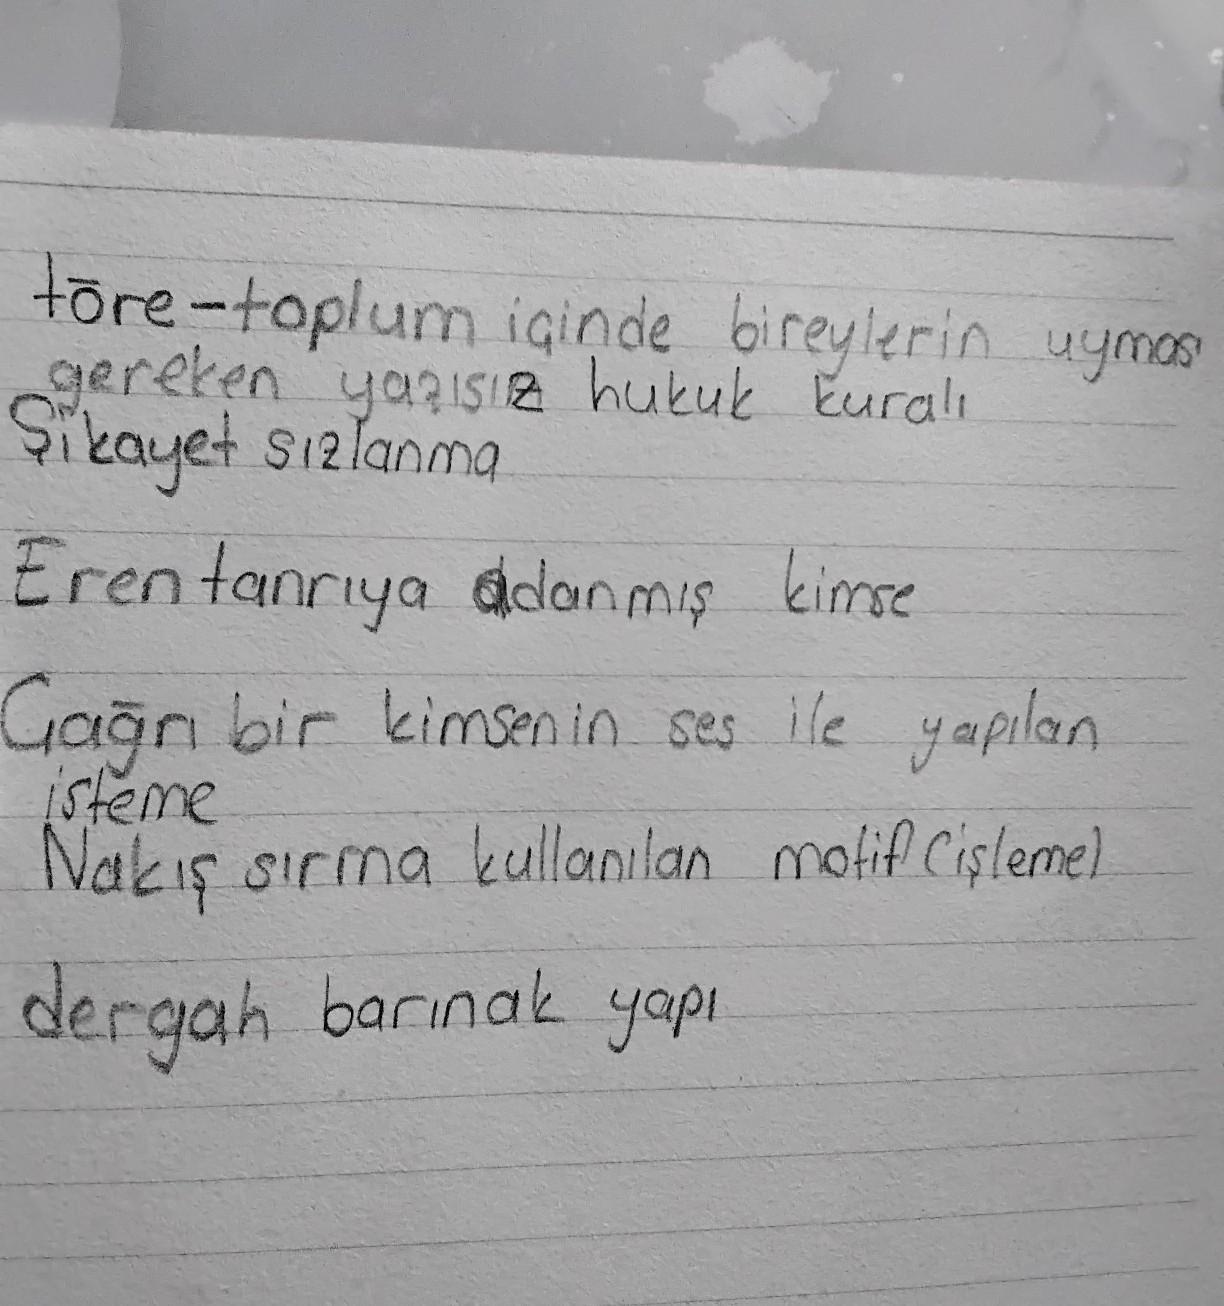 töre-toplum içinde bireylerin uyması
gereken yazısız hukuk kuralı
Şikayet sızlanma
Eren tanrıya adanmış kimse
Çağrı bir kimsenin ses ile yapılan
isteme
Nakış sırma kullanılan motif (işleme)
dergah barınak yapı